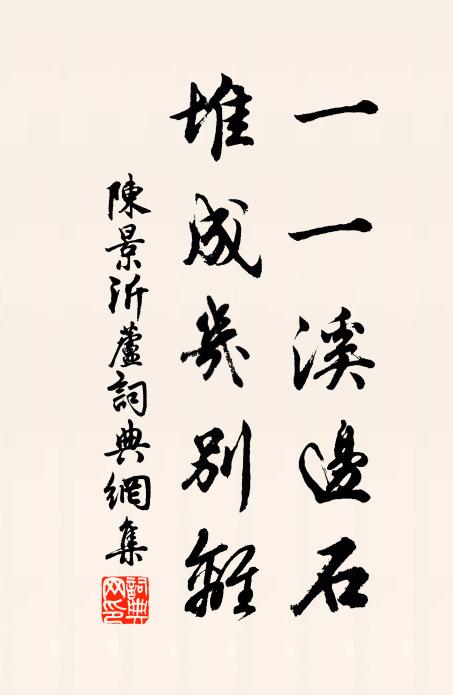 一一溪邊石
堆成幾別離
陳景沂蘆詞典網集
詞典網印